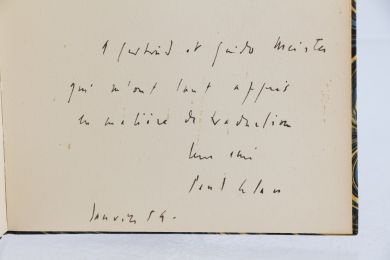 A Gertrud et Guido Meister
qui m'ont tant appris
en matière de traduction
leur ami
Paul Celan
Janvier 54.